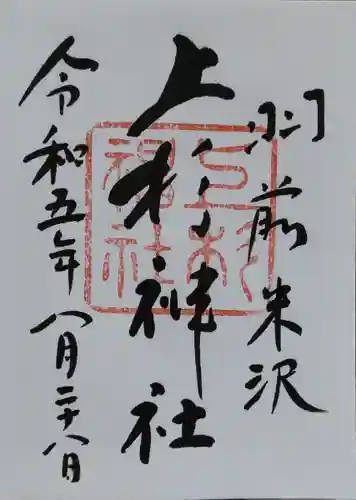 羽前米沢
上杉神社
令和五年八月二十八日
上杉
神社